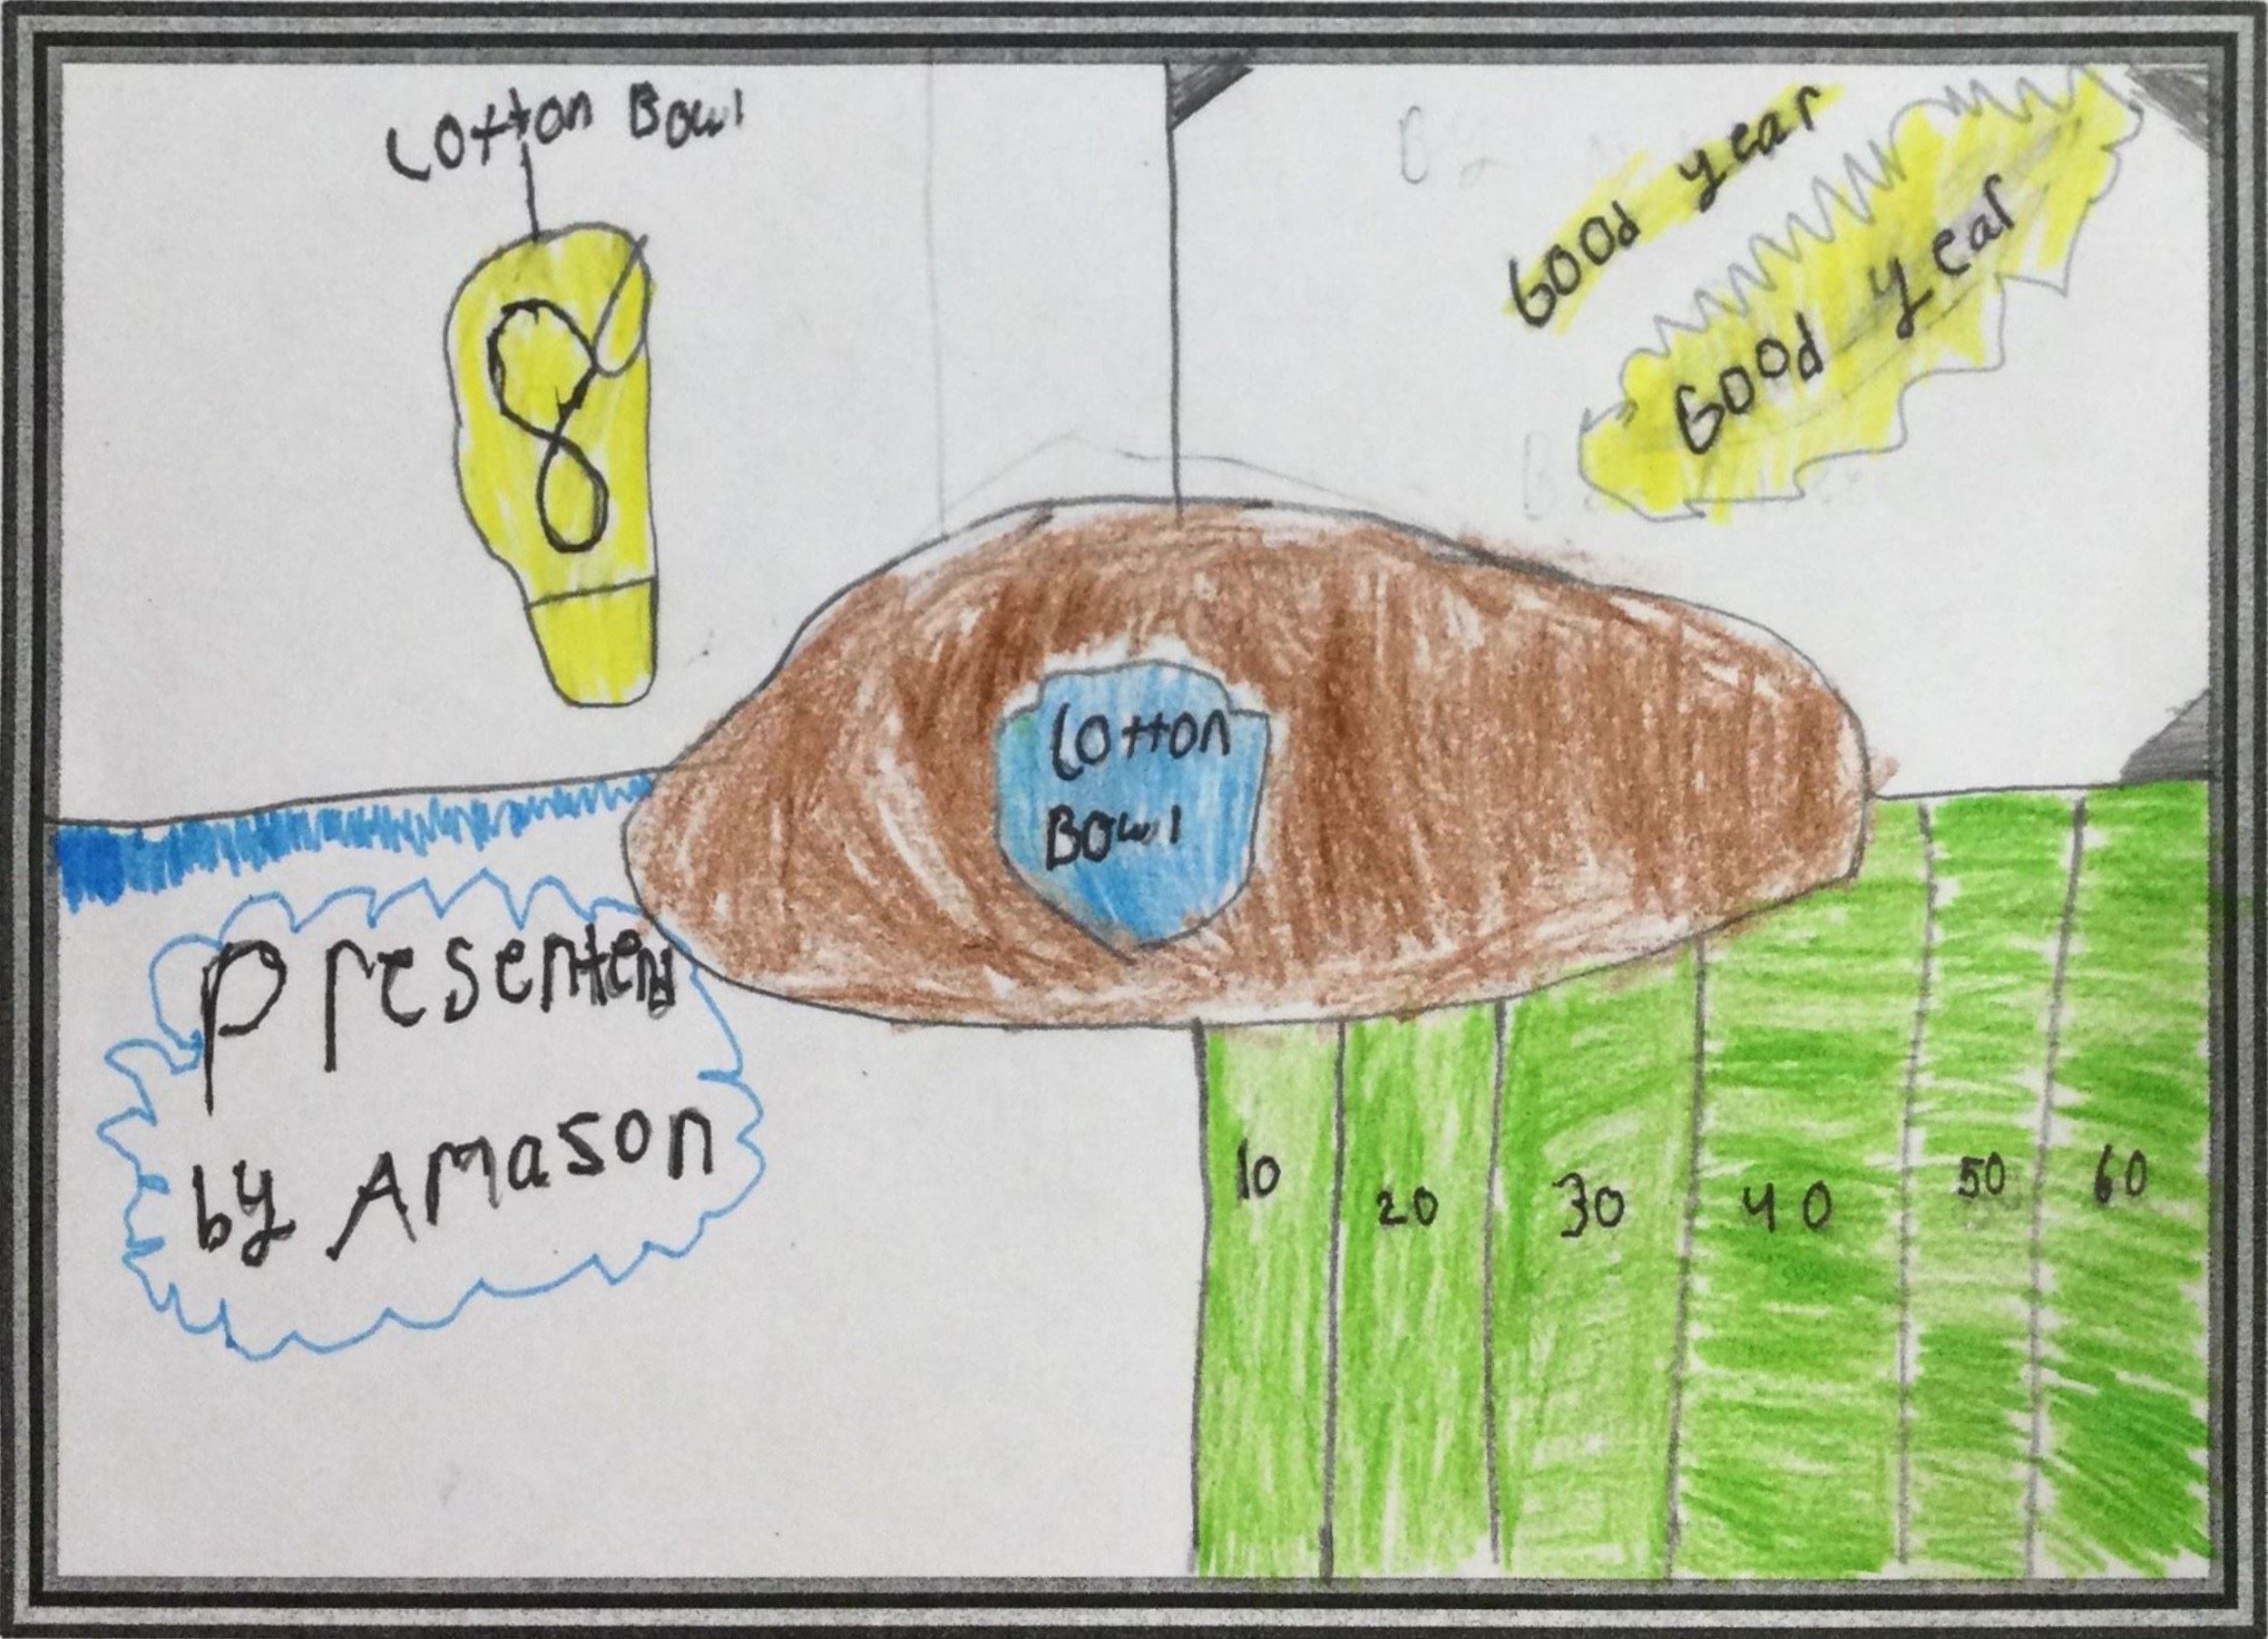 Cotton Bowl
8
Good year
Good year
Cotton
Bowl
Presented
by Amason
10 20 30 40 50 60